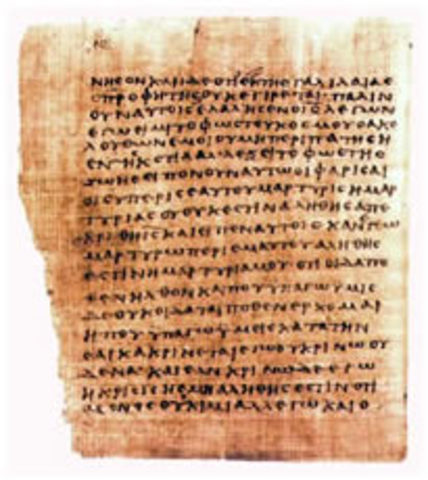 ΝΗϹΟΝΚΑΙΙΔΕΟΤΙΕΚΤΗϹΓΑΛΙΛΑΙΑϹ
ΟΠΡΟΦΗΤΗϹΟΥΚΕΓΙΡΕΤΑΙ·ΠΑΛΙΝ
ΟΥΝΑΥΤΟΙϹΕΛΑΛΗϹΕΝΟΙϹΛΕΓΩΝ
ΕΓΩΕΙΜΙΤΟΦΩϹΤΟΥΚΟϹΜΟΥΟΑΚΟ
ΛΟΥΘΩΝΕΜΟΙΟΥΜΗΠΕΡΙΠΑΤΗϹΗ
ΕΝΤΗϹΚΟΤΙΑΑΛΛΑΕΞΕΙΤΟΦΩϹΤΗϹ
ΖΩΗϹΕΙΠΟΝΟΥΝΑΥΤΩΟΙΦΑΡΙϹΑΙ
ΟΙϹΥΠΕΡΙϹΕΑΥΤΟΥΜΑΡΤΥΡΙϹΗΜΑΡ
ΤΥΡΙΑϹΟΥΟΥΚΕϹΤΙΝΑΛΗΘΗϹΑΠΕ
ΚΡΙΘΗΙϹΚΑΙΕΙΠΕΝΑΥΤΟΙϹΚΑΝΕΓΩ
ΜΑΡΤΥΡΩΠΕΡΙΕΜΑΥΤΟΥΑΛΗΘΗϹ
ΕϹΤΙΝΗΜΑΡΤΥΡΙΑΜΟΥΟΤΙΟΙΔΑΠΟ
ΘΕΝΗΛΘΟΝΚΑΙΠΟΥΥΠΑΓΩΥΜΙϹ
ΔΕΟΥΚΟΙΔΑΤΑΙΠΟΘΕΝΕΡΧΟΜΑΙ
ΗΠΟΥΥΠΑΓΩΥΜΕΙϹΚΑΤΑΤΗΝ
ϹΑΡΚΑΚΡΙΝΕΤΑΙΕΓΩΟΥΚΡΙΝΩΟΥ
ΔΕΝΑΚΑΙΕΑΝΚΡΙΝΩΔΕΕΓΩ
ΗΚΡΙϹΙϹΗΕΜΗΑΛΗΘΗϹΕϹΤΙΝΟΤΙ
ΜΟΝΟϹΟΥΚΙΜΙΑΛΛΕΓΩΚΑΙΟ